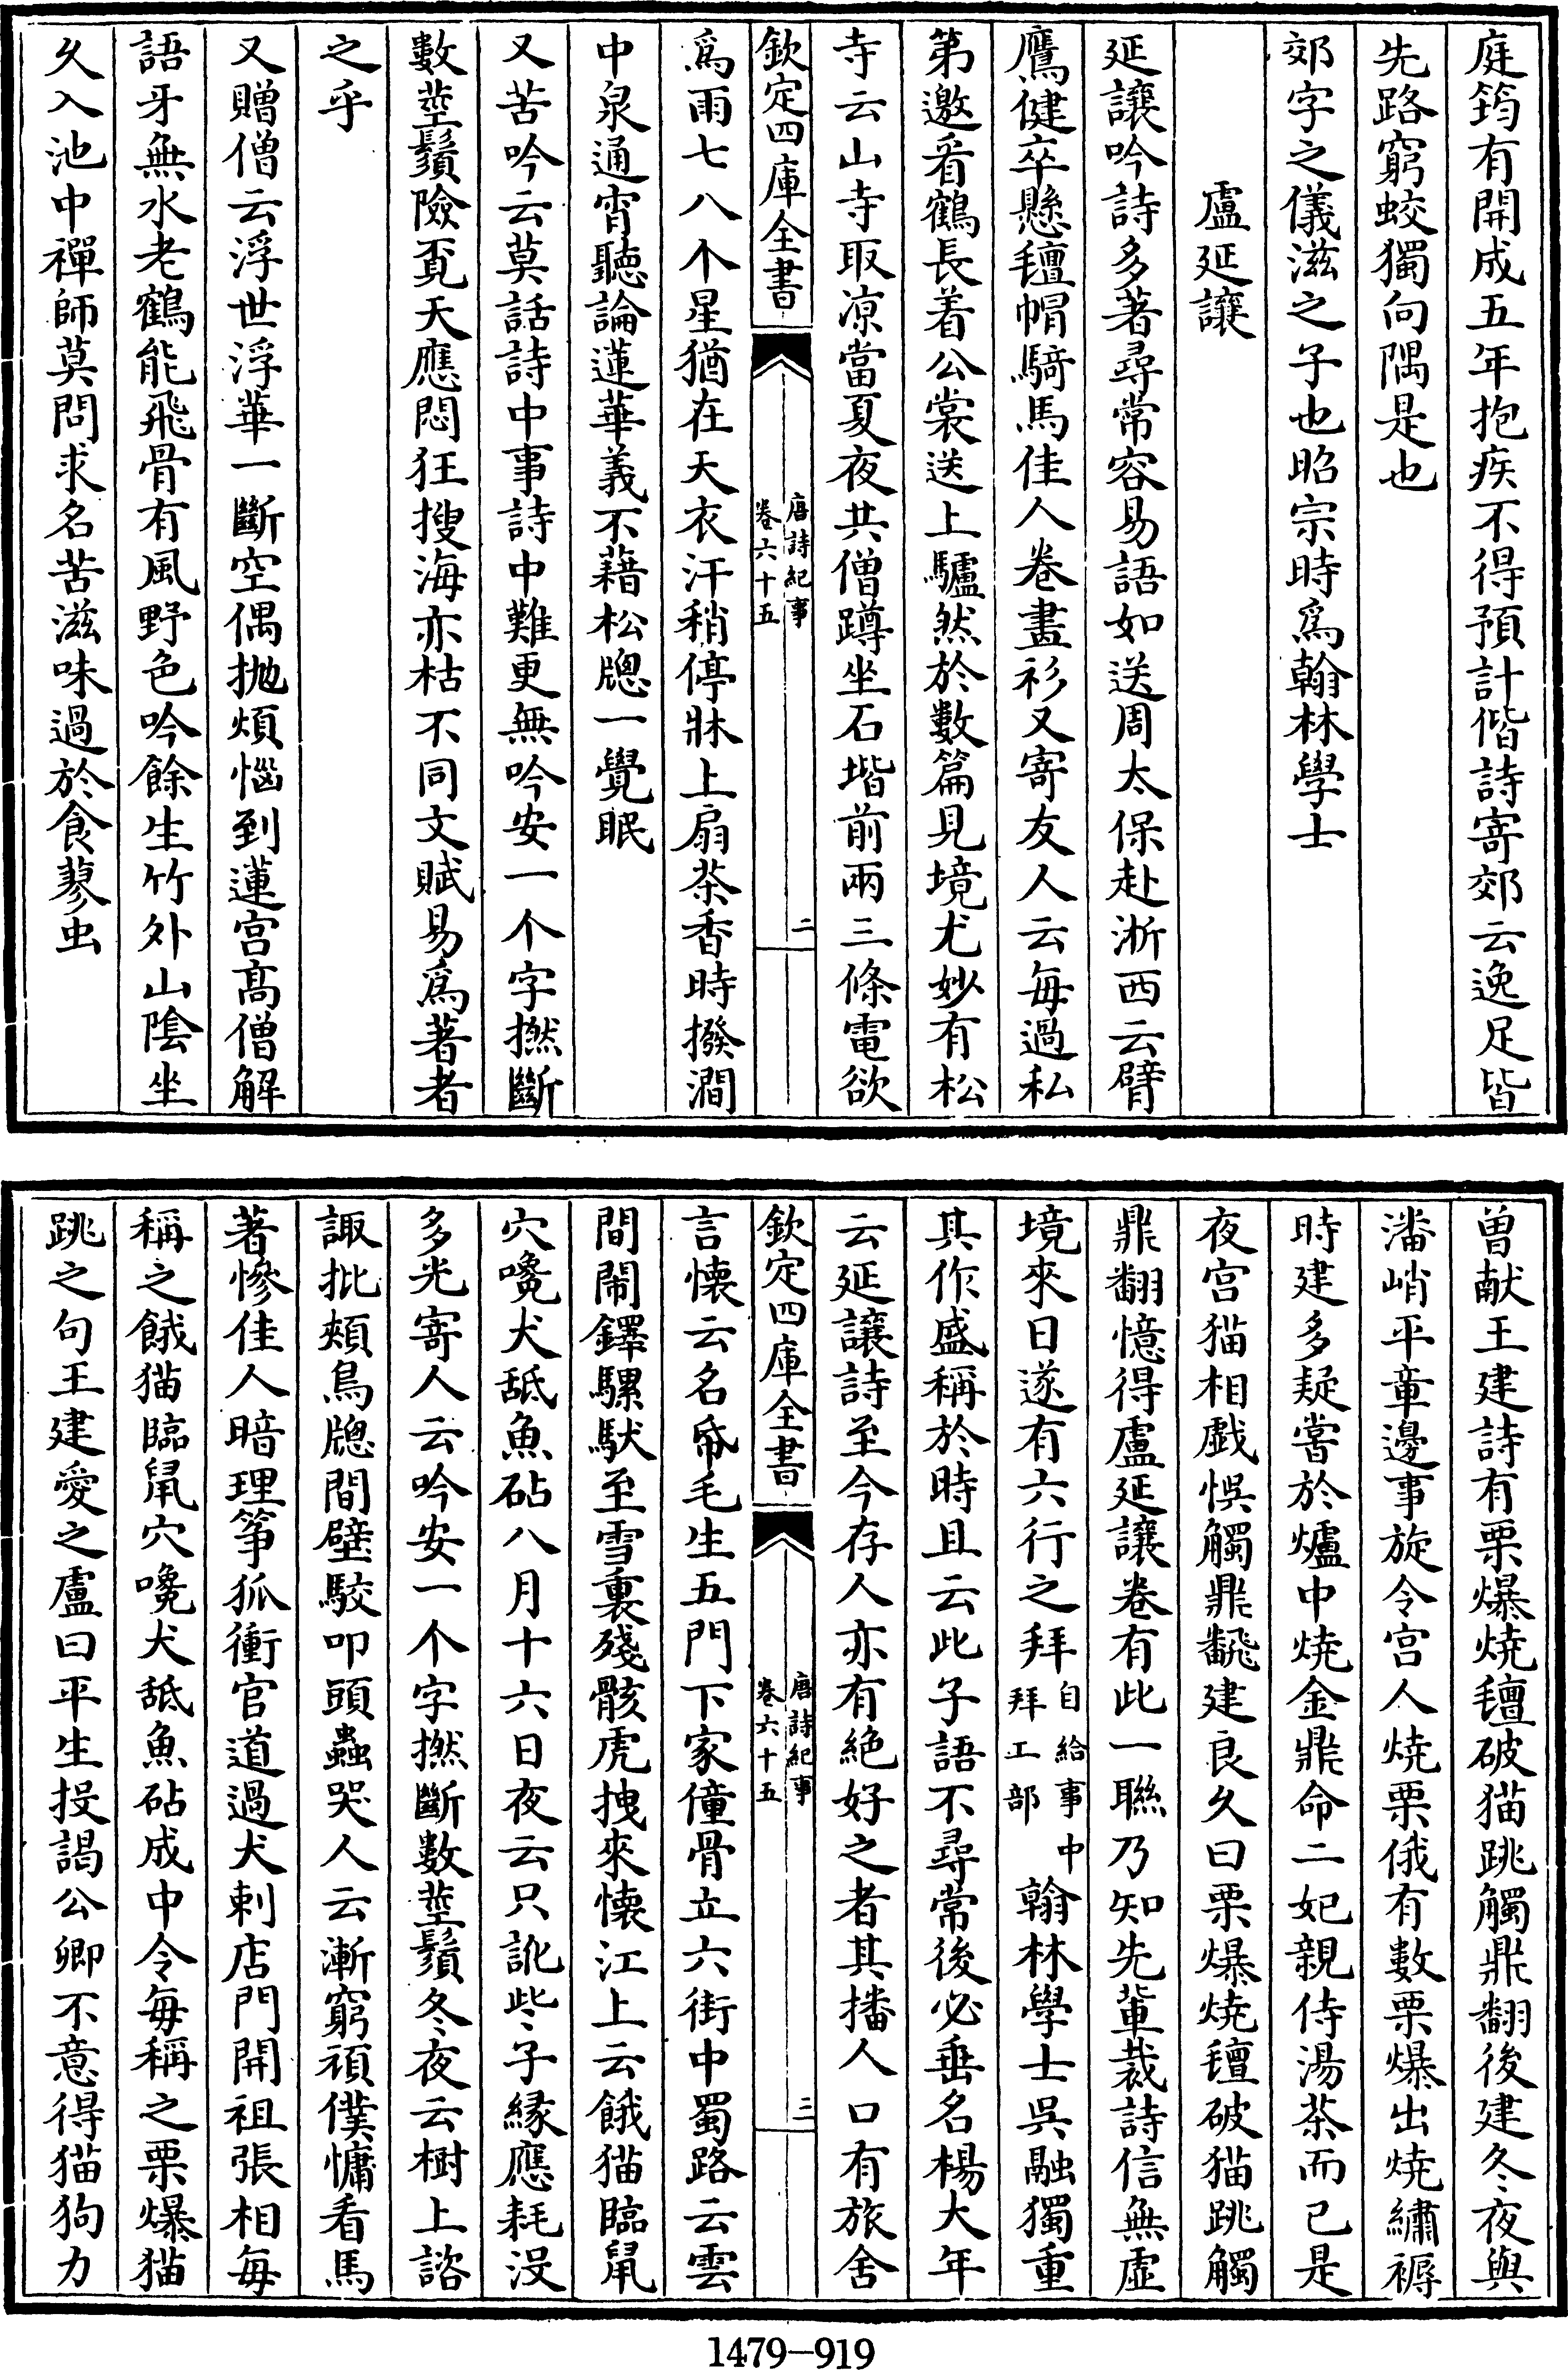 庭筠有開成五年抱疾不得預計偕詩寄郊云逸足皆
先路窮蛟獨向隅是也
郊字之儀滋之子也昭宗時爲翰林學士
盧延讓
延讓吟詩多著尋常容易語如送周太保赴淅西云臂
鷹健卒懸氊帽騎馬佳人卷畫衫又寄友人云每過私
第邀看鶴長着公裳送上驢然於數篇見境尤妙有松
寺云山寺取凉當夏夜共僧蹲坐石堦前兩三條電欲
欽定四庫全書
唐詩紀事
卷六十五
二
爲雨七八个星猶在天衣汗稍停牀上扇茶香時撥澗
中泉通宵聽論蓮華義不藉松牕一覺眠
又苦吟云莫話詩中事詩中難更無吟安一个字撚斷
數莖鬚險覔天應悶狂搜海亦枯不同文賦易爲著者
之乎
又贈僧云浮世浮華一斷空偶抛煩惱到蓮宫髙僧解
語牙無水老鶴能飛骨有風野色吟餘生竹外山隂坐
久入池中禪師莫問求名苦滋味過於食蓼虫
曽献王建詩有栗爆焼氊破猫跳觸鼎翻後建冬夜與
潘峭平章邊事旋令宫人焼栗俄有數栗爆出焼繡褥
時建多疑嘗於爐中焼金鼎命二妃親侍湯茶而已是
夜宫猫相戯悞觸鼎飜建良久曰栗爆焼氊破猫跳觸
鼎翻憶得盧延讓卷有此一聯乃知先軰裁詩信無虚
境來日遂有六行之拜自給事中拜工部翰林學士呉融獨重
其作盛稱於時且云此子語不尋常後必垂名楊大年
云延讓詩至今存人亦有絶好之者其播人口有旅舍
欽定四庫全書
唐詩紀事
卷六十五
三
言懐云名帋毛生五門下家僮骨立六街中蜀路云雲
間閙鐸騾馱至雪裏殘骸虎拽來懐江上云餓猫臨鼠
穴嚵犬舐魚砧八月十六日夜云只訛些子縁應耗没
多光寄人云吟安一个字撚斷數莖鬚冬夜云樹上諮
諏批頰鳥牕間壁駮叩頭蟲哭人云漸窮頑僕慵看馬
著慘佳人暗理筝狐衝官道過犬刺店門開祖張相每
稱之餓猫臨鼠穴嚵犬舐魚砧成中令每稱之栗爆猫
跳之句王建愛之盧曰平生投謁公卿不意得猫狗力
1479-919